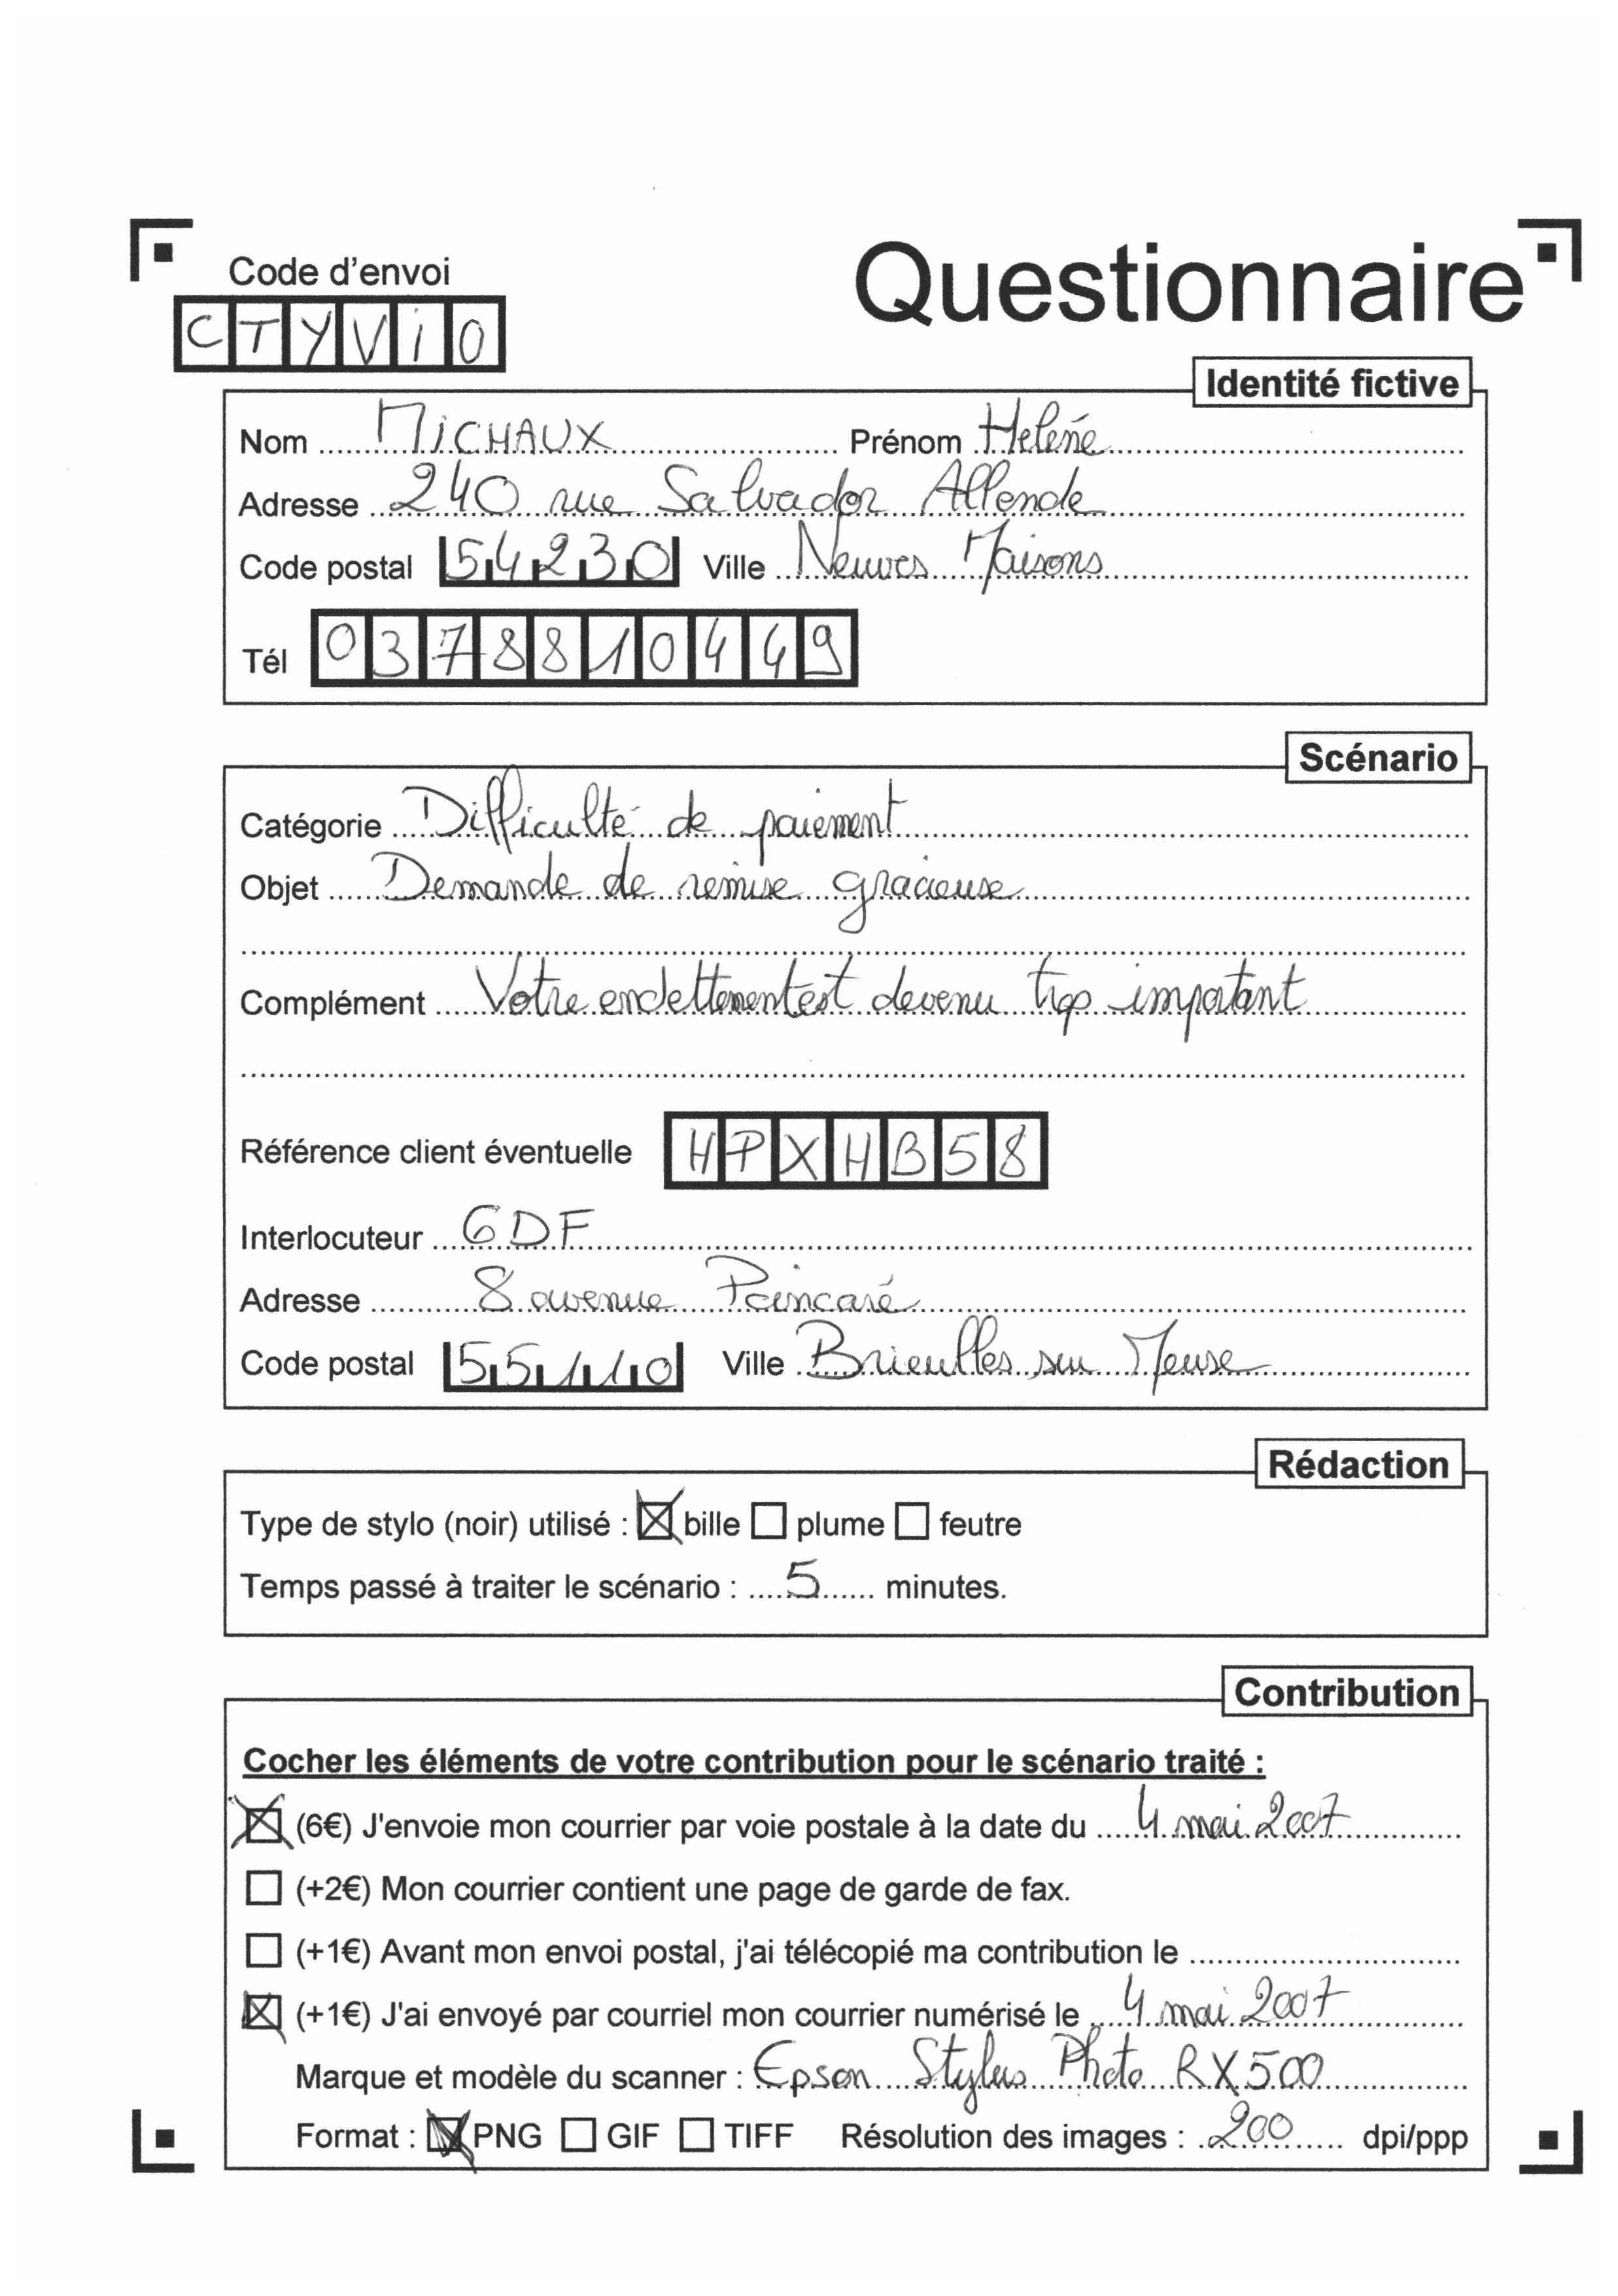 Code d'envoi
Questionnaire
CTYViO
Identité fictive
Nom MiCHAUX Prénom Helène
Adresse 240 rue Salvador Allende
Code postal 54230 Ville Neuves Maisons
Tél 0378810449
Scénario
Catégorie Difficulté de paiement
Objet Demande de remise gracieuse
Complément Votre endettement est devenu trop important
Référence client éventuelle HPXHB58
Interlocuteur GDF
Adresse 8 avenue Poincaré
Code postal 55110 Ville Brieulles sur Meuse
Rédaction
Type de stylo (noir) utilisé : bille plume feutre
Temps passé à traiter le scénario : 5 minutes.
Contribution
Cocher les éléments de votre contribution pour le scénario traité :
(6€) J'envoie mon courrier par voie postale à la date du 4 mai 2007
(+2€) Mon courrier contient une page de garde de fax.
(+1€) Avant mon envoi postal, j'ai télécopié ma contribution le
(+1€) J'ai envoyé par courriel mon courrier numérisé le 4 mai 2007
Marque et modèle du scanner : Epson Stylus Photo RX500
Format : PNG GIF TIFF Résolution des images : 200 dpi/ppp